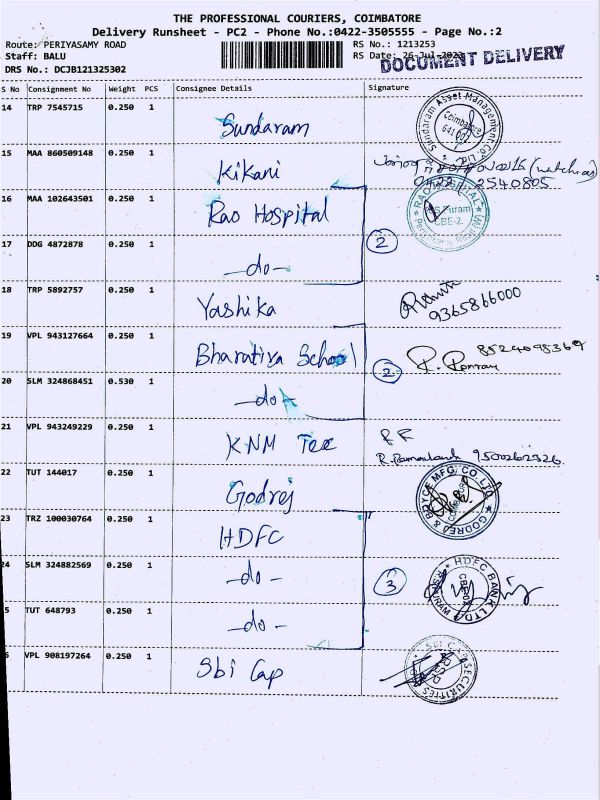 THE PROFESSIONAL COURIERS, COIMBATORE
Delivery Runsheet - PC2 - Phone No.:0422-3505555 - Page No.:2
Route: PERIYASAMY ROAD
RS No.: 1213253
Staff: BALU
RS Date: 26-Jul-2023
DOCUMENT DELIVERY
DRS No.: DCJB121325302
S No Consignment No Weight PCS Consignee Details Signature
14 TRP 7545715 0.250 1 Sundaram
Sundaram Asset Management Co. Ltd
Coimbatore
15 MAA 860509148 0.250 1 Kikani
0422 2540805
16 MAA 102643501 0.250 1 Rao Hospital
RAO HOSPITAL
R.S. Puram
CBE-2
2
17 DDG 4872878 0.250 1 -do-
18 TRP 5892757 0.250 1 Yashika
9365866000
19 VPL 943127664 0.250 1 Bharatiya School
8524095369
2
20 SLM 324868451 0.530 1 -do-
21 VPL 943249229 0.250 1 KNM Tex
9500262326
22 TUT 144017 0.250 1 Godrej
GODREJ & BOYCE MFG. CO. LTD
23 TRZ 100030764 0.250 1 HDFC
24 SLM 324882569 0.250 1 -do-
3
HDFC BANK LTD
R.S. PURAM
5 TUT 648793 0.250 1 -do-
VPL 908197264 0.250 1 Sbi Cap
SBI CAP SECURITIES